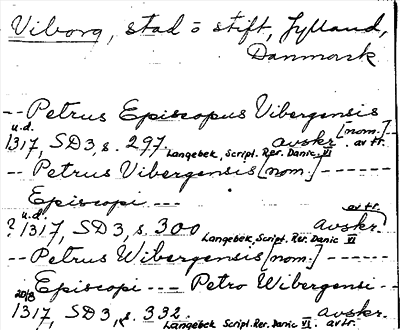 Viborg, stad o stift, Jylland,
Danmark
-- Petrus Episcopus Vibergensis
[nom.] --
u.d.
1317, SD3, s. 297. avskr. av tr.
Langebek, Script. Rer. Danic. VI
-- Petrus Vibergensis [nom.] ------
Episcopi --
u.d. av tr.
? 1317, SD3, s. 300 avskr.
Langebek, Script. Rer. Danic VI
-- Petrus Wibergensis [nom.] ------
Episcopi --- Petro Wibergensi --
20/8
1317, SD3, s. 332. avskr.
Langebek Script. Rer. Danic VI. av tr.